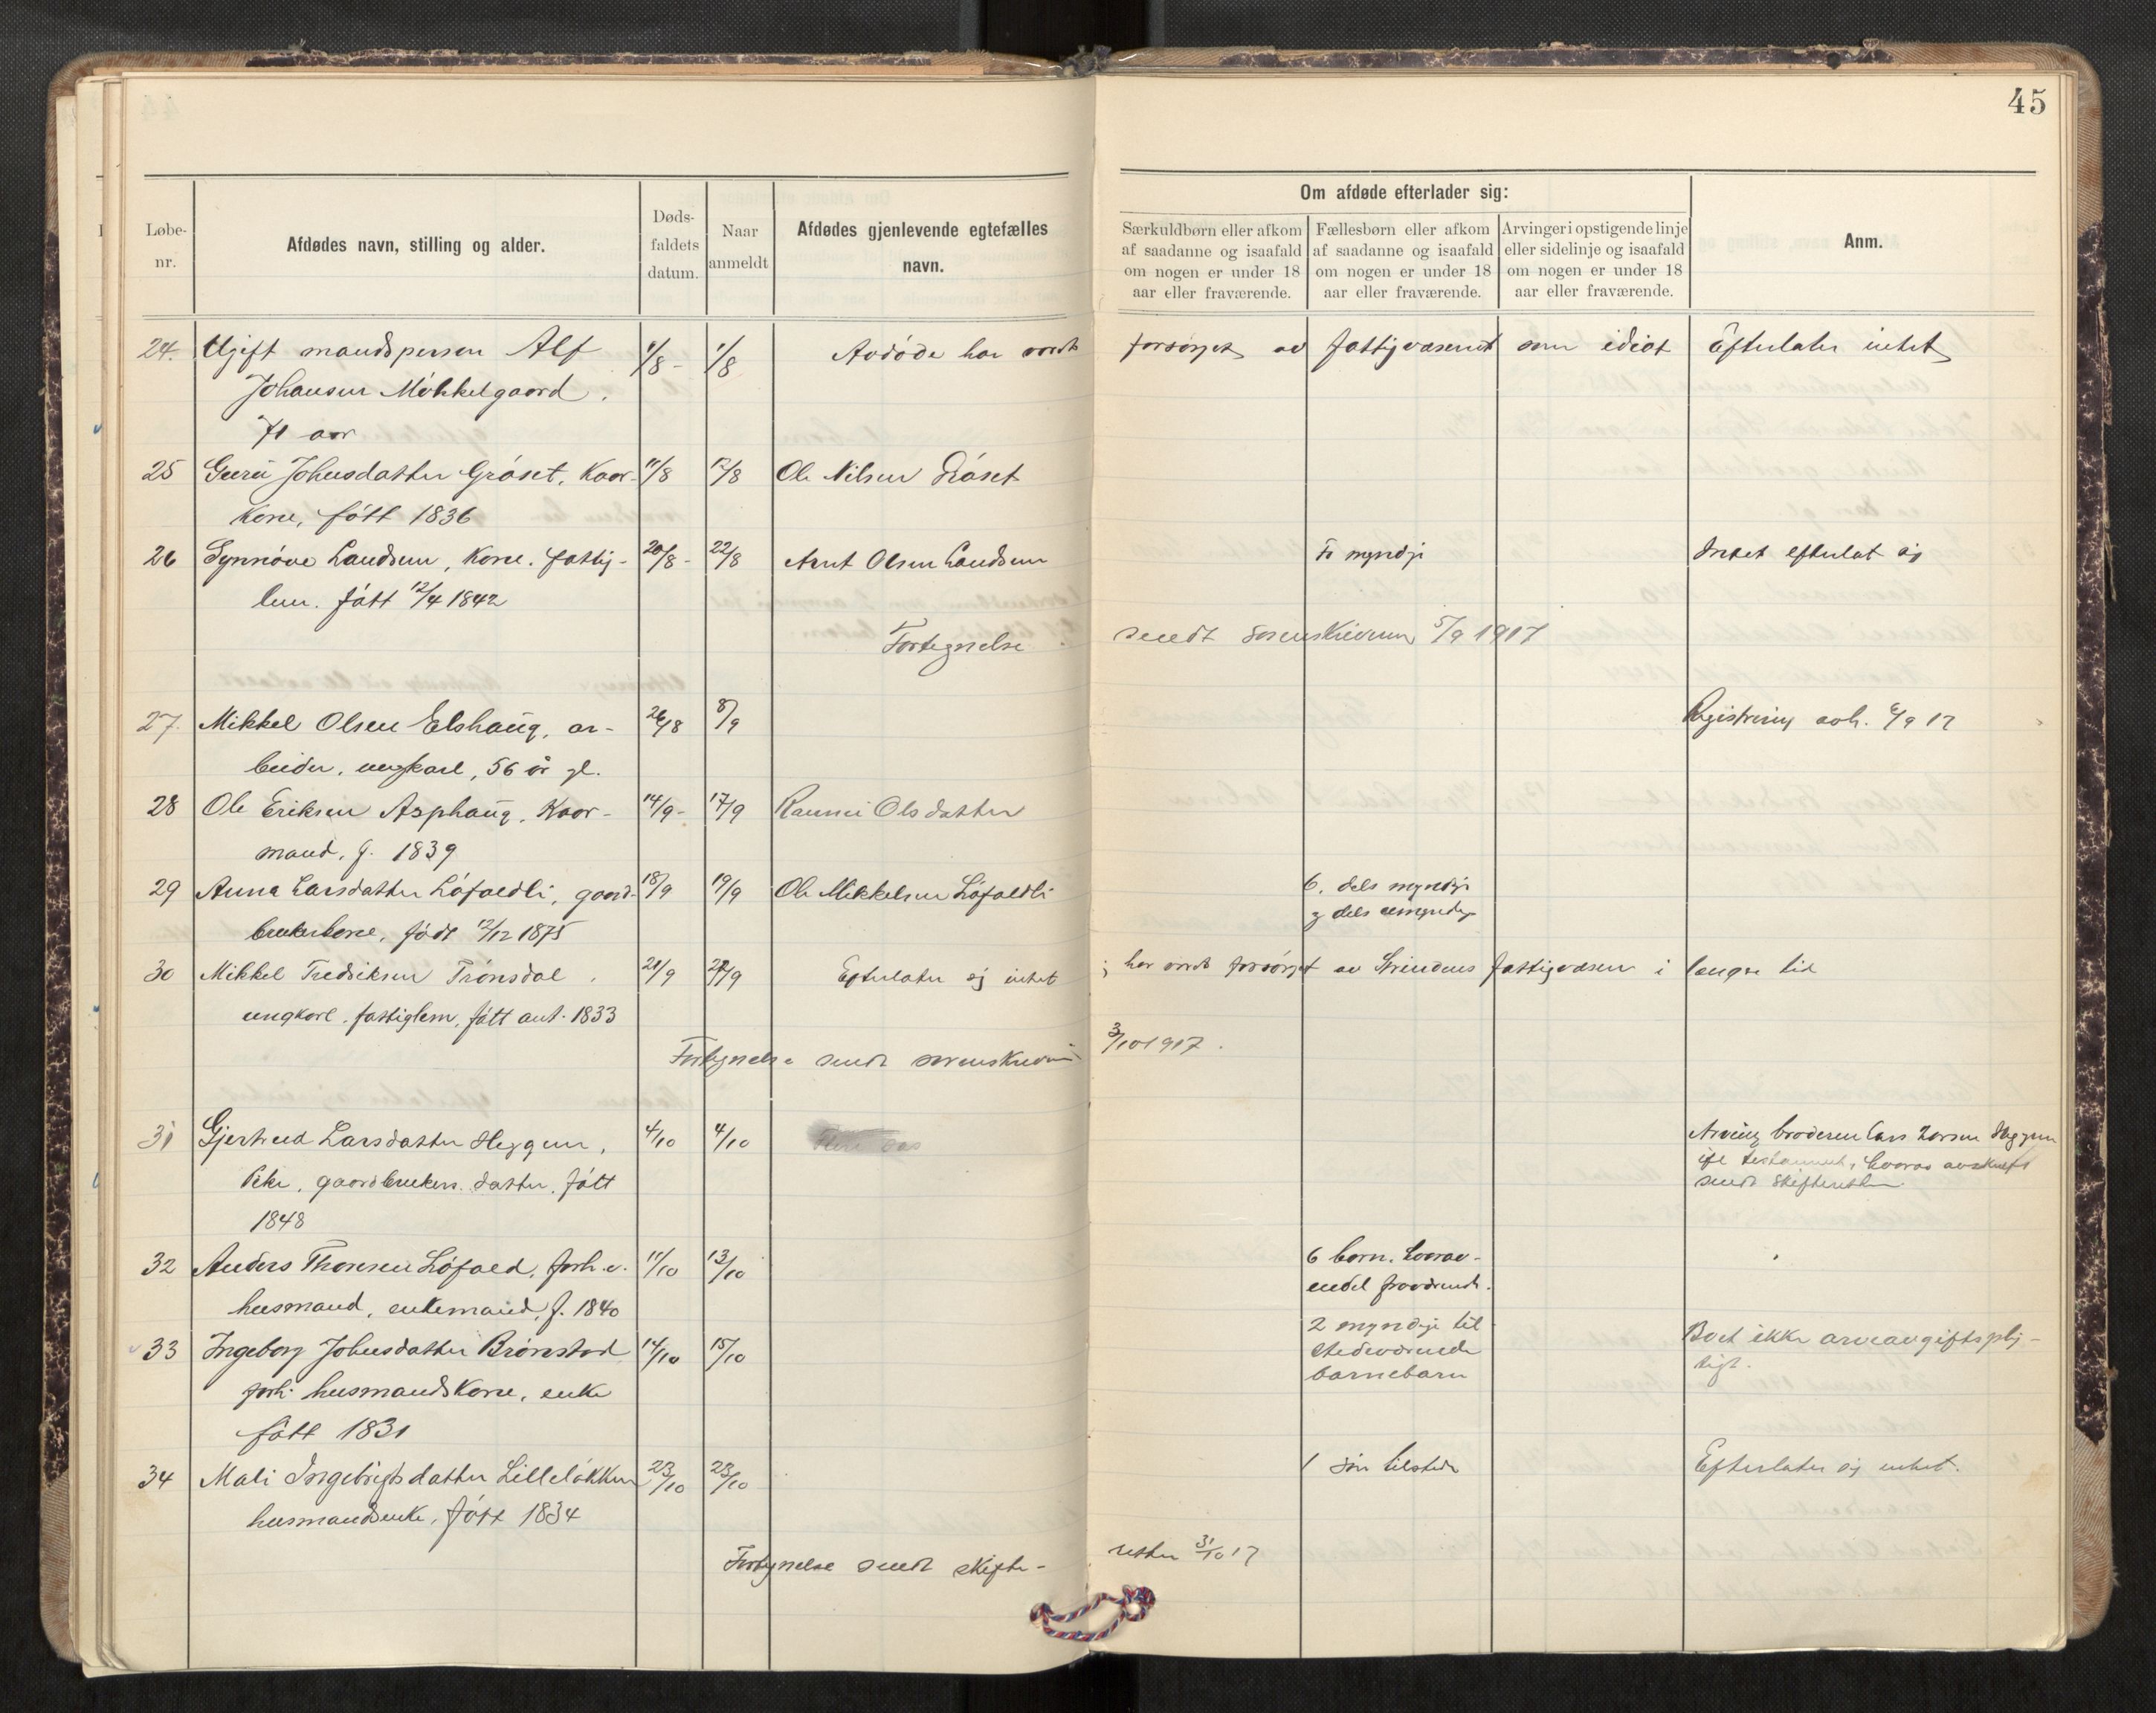 45
Løbe-
nr.
Afdødes navn, stilling og alder.
Døds-
faldets
datum.
Naar
anmeldt
Afdødes gjenlevende egtefælles
navn.
Om afdøde efterlader sig:
Særkuldbørn eller afkom
af saadanne og isaafald
om nogen er under 18
aar eller fraværende.
Fællesbørn eller afkom
af saadanne og isaafald
om nogen er under 18
aar eller fraværende.
Arvinger i opstigende linje
eller sidelinje og isaafald
om nogen er under 18
aar eller fraværende.
Anm.
24. Ugift mandsperson Alf 1/8 - 1/8 Avdøde har været forsørget av fattigvæsenet som idiot Efterlater intet
Johansen Mökkelgaard.
71 aar
25 Guru Johnsdatter Gråset, Kaar- 11/8 12/8 Ole Nilsen Gråset
kone, född 1836
26 Synnöve Landsem, Kone. fattig- 20/8 - 22/8 Arnt Olsen Landsem To myndige Intet efterlat sig
lem. född 12/4 1842
Fortegnelse sendt sorenskriveren 5/9 1917
27. Mikkel Olsen Elshaug, ar- 26/8 8/9 Registrering avh. 6/9 17
beider, ungkarl, 56 år gl.
28 Ole Eriksen Asphaug, Kaar- 14/9 - 17/9 Rannei Olsdatter
mand, f. 1839
29 Anna Larsdatter Löfaldli, gaard- 18/9 19/9 Ole Mikkelsen Löfaldli 6. dels myndige
brukerkone, född 12/12 1875 og dels umyndige
30 Mikkel Fredriksen Trönsdal. 21/9 24/9 Efterlater sig intet; har været forsörget av Strindens fattigvæsen i længre tid
ungkarl. fattiglem, född ant. 1833
Fortegnelse sendt sorenskriveren 3/10 1917.
31 Gjertrud Larsdatter Heggem, 4/10 4/10 Arving broderen Lars Larsen Heggem
Pike, gaardbrukers datter, född ifl testament, hvorav avskrift
1848 sendt skifteretten
32 Anders Thoresen Löfald, forh.v. 11/10 13/10 6 barn. hvorav
husmand, enkemand, f. 1840 endel fraværende.
33 Ingeborg Johnsdatter Brönstad 14/10 15/10 2 myndige til Boet ikke arveavgiftsplig-
forh. husmandskone, enke stedeværende tigt.
född 1831 barnebarn
34 Mali Ingebrigtsdatter Lillelökken 23/10 23/10 1 sön tilstede Efterlater sig intet.
husmandsenke, född 1834
Fortegnelse sendt skifte- retten 31/10 17